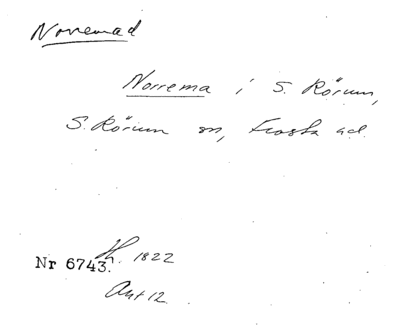 Norremad
Norrema i S. Rörum,
S. Rörum sn, Frosta hd.
Nr 6743. 1822
Ant 12